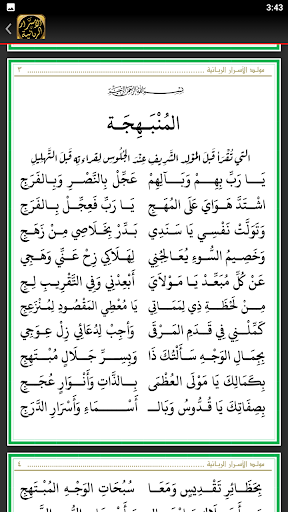 3:43
الأسرار الربانية
مولد الأسرار الربانية ٣
بسم الله الرحمن الرحيم
المُنْبَهِجَة
التي تُقْرَأ قَبلَ المَوْلِد الشَّرِيفِ عِنْدَ الجُلُوسِ لِقِرَاءتِهِ قَبلَ التَّهْلِيلِ
يَـا رَبِّ بِهِــمْ وَبِـآلِهِـمْ عَجِّلْ بِالنَّصْرِ وَبِالفَرَجِ
اشْتَدَّ هَوَايَ عَلَى المُهَجِ يَا رَبِّ فَعَجِّلْ بِالفَرَجِ
وَتَوَلَّتْ نَفْسِي يَا سَنَدِي بَدِّرْ بِخَلَاصِي مِنْ رَهَجِ
وَخَصِيمُ السُّوءِ يُعَالِجُنِي لِهَلَاكِي زِحْ عَنِّي وَهَجِي
عَنْ كُلِّ مُبَعِّدٍ يَا مَوْلَايَ أَبْعِدْنِي وَفِي التَّقْرِيبِ لِجِ
مِنْ لَحْظَةِ ذِي لِمَمَاتِي يَا مُعْطِي المَقْصُودِ لِمُنْزَعِجِ
كَمِّلْنِي فِي قَدَمِ المَرْقَى وَأَجِبْ لِدُعَائِي زِلْ عِوَجِي
بِجَمَالِ الوَجْهِ سَأَلْتُكَ ذَا وَبِسِرِّ جَلَالٍ مُبْتَهِجِ
بِكَمَالِكَ يَا مَوْلَى العُظْمَى بِالذَّاتِ وَأَنْوَارٍ عُجَجِ
بِصِفَاتِكَ يَا قُدُّوسُ وَبَالـ أَسْمَاءِ وَأَسْرَارِ الدَّرَجِ
مولد الأسرار الربانية ٤
بِحَظَائِرِ تَقْدِيسٍ وَمَعَا سُبُحَاتِ الوَجْهِ المُبْتَهِجِ